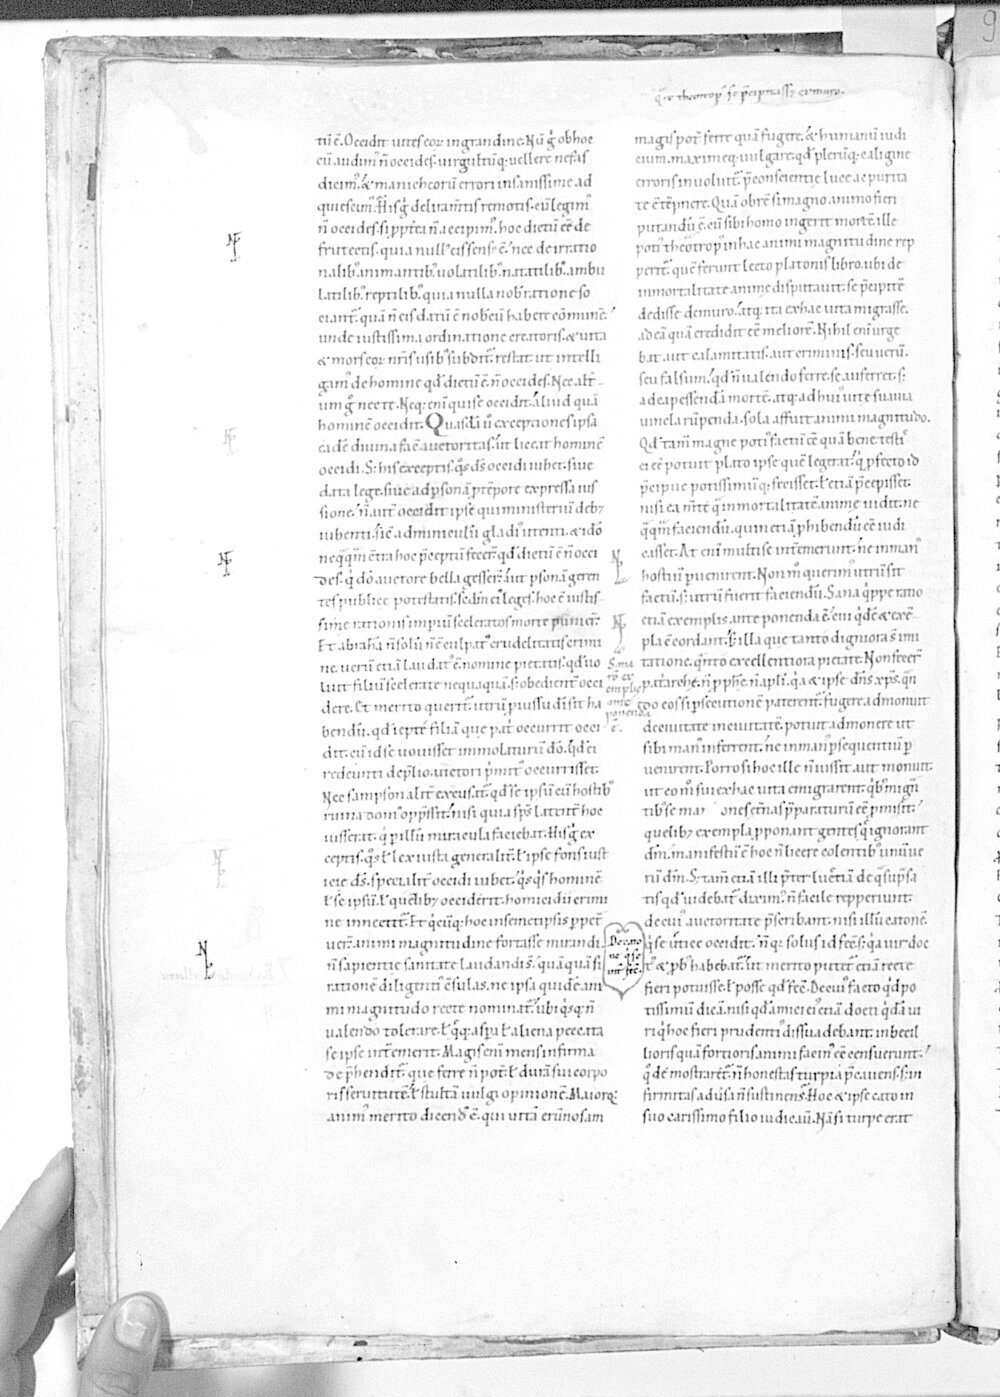 q̅r theotrop᷒ se p̅cipitass& de muro.
tiū ē. Occidit uites eoꝝ in grandine. Nū g̊ ob hoc
cū audim᷒ n̄ occides. uirgultū q; uellere nefas
dicim᷒. & manicheorū errori insanissime ad
quiescim᷒. His g̊ deliram̄tis remotis. cū legim᷒
n̄ occides. si ppt̄ea n̄ accipim᷒. hoc dictū eē de
frutectis. quia null᷒ eis sensꝰ ē. nec de irratio
nalib᷒ animantib᷒ uolatilib᷒. natatilib᷒. ambu
latilib᷒. reptilib᷒. quia nulla nob̄ ratione so
ciant᷑. quā n̄ eis datū ē nob̄cū habere cōmunē.
unde iustissima ordinatione creatoris. & uita
& mors eoꝝ nr̄is usib᷒ subdit᷑. restat ut intelli
gam᷒ de homine qd̓ dictū ē. n̄ occides. Nec alt̄
um g̊ nec te. Neq; eni̅ qui se occidit. aliud quā
hominē occidit. Quasdā u̓ exceptiones ipsa
eadē diuina fac̄ auctoritas. ut liceat hominē
occidi. S; his exceptis. q̊s ds̄ occidi iubet. siue
data lege. siue ad p̱sonā p̱ tēpore expressa ius
sione. n̄ aut̄ occidit ipse qui ministeriū deb&
iubenti. sic̄ adminiculū gladi᷒ utenti. & idō
neq̄q̄m ct̄ra hoc p̅ceptū fecer̄. qd̓ dictū ē n̄ occi
des. q̇ dō auctore bella gesser̄. aut p̱sonā geren
tes publicę potestatis. scd̄m ei᷒ leges. hoc ē iustis
sime rationis impiū sceleratos morte punier̄.
Et abrahā n̄ solū n̄ ē culpat᷒ crudelitatis crimi
ne. uerū etiā laudat᷒ ē. nomine pietatis. qd̓ uo
luit filiū scelerate nequaquā. s; obedient̄ occi
dere. Et merito querit᷑. utrū p̱ iussu di̅ sit ha
bendū. qd̓ iepte filiā que pat̄ occurrit occi
dit. cū id se uouisset immolaturū dō. qd̓ ei
redeunti de p̱lio. uictori p̓mit᷒ occurrisset.
Nec sampson alit̄ excusat᷑. qd̓ se ipsū cū hostib᷒
ruina dom᷒ opp̅ssit. nisi quia sps̄ latent̄ hoc
iusserat. q̇ p̱ illū miracula faciebat. His g̊ ex
ceptis. q̊s ł lex iusta generalit̄. ł ipse fons iust
icie ds̄. specialit̄ occidi iubet. q̇sq̇s hominē
ł se ipsū. ł quēlib& occiderit. homicidii crimi
ne innectit᷑. Et q̇cūq; hoc in semetipsis p̱pet̄
uer̄. animi magnitudine fortasse mirandi.
n̄ sapientie sanitate laudandi s̄. quāquā si
rationē diligenti᷒ c̄sulas. ne ipsa quidē ani
mi magnitudo recte nominat᷑. ubi q̇sq; n̄
ualendo tolerare. ł q̇q; asp̱a ł aliena peccata
se ipse int̄emerit. Magis eni̅ mens infirma
dep̅hendit᷑. que ferre n̄ pot̄. ł durā sui corpo
ris seruitutē. ł stultā uulgi opinionē. Maiorq;
anim᷒ merito dicend᷒ ē. qui uitā erūnosam
Sana
rō ex
emplis
ante
ponenda
ē.
De cato
ne q̇ se
int̄fec̄.
magis pot̄ ferre quā fugere. & humanū iudi
cium. maxime q; uulgare. qd̓ plerūq; caligine
erroris inuoluit᷑. p̅ conscientie luce ac purita
te c̄tēpnere. Quā ob rē si magno animo fieri
putandū ē. cū sibi homo ingerit mortē. ille
poti᷒ theotrop᷒ in hac animi magnitudine rep
perit᷑. quē ferunt lecto platonis libro. ubi de
inmortalitate anime disputauit. se p̅cipitē
dedisse de muro. atq; ita ex hac uita migrasse.
ad eā quā credidit eē meliorē. Nihil eni̅ urge
bat. aut calamitatis. aut criminis. seu uerū.
seu falsum. qd̓ n̄ ualendo ferre. se auferret. s;
ad capessendā mortē. atq; ad hui᷒ uite suauia
uincla rūpenda. sola affuit animi magnitudo.
Qd̓ tam̄ magne poti᷒ factū eē quā bene. testis
ei eē potuit plato ipse quē legerat. q̇ p̱fecto id
p̅cipue potissimūq; fecisset. ł etiā p̅cepisset.
nisi ea m̄te q̄ inmortalitatē anime uidit. ne
q̄q̄m faciendū. quin etiā p̱hibendū eē iudi
casset. At eni̅ multi se int̄emerunt. ne in man᷒
hostiū puenirent. Non m̊ querim᷒ utrū sit
factū. s; utrū fuerit faciendū. Sana q̇ppe ratio
etiā exemplis anteponenda ē. cui q̇dē & exē
pla c̄cordant. s; illa que tanto digniora s̄ imi
tatione. q̊nto excellentiora pietate. Non fecer̄
patriarche. n̄ pph̄e. n̄ apl̄i. q̇a & ipse dn̄s xp̄s. q̄n
do eos si p̱secutionē paterent᷑. fugere admonuit
de ciuitate in ciuitatē. potuit admonere ut
sibi man᷒ inferrent. ne in man᷒ p̱sequentiū p̱
uenirent. Porro si hoc ille n̄ iussit aut monuit.
ut eo m̊ sui ex hac uita emigrarent. q̇b᷒ migr̄
tib᷒ se man ones et̄nas p̅paraturū eē p̱misit.
quelib& exempla p̱ponant gentes q̄ ignorant
dm̄. manifestū ē hoc n̄ licere colentib᷒ unū ue
rū dm̄. S; tam̄ etiā illi p̅ter lucretiā de q̄ supra sa
tis qd̓ uidebat᷑ dixim᷒. n̄ facile repperiunt.
de cui᷒ auctoritate p̅scribant. nisi illū catonē.
q̇ se utice occidit. n̄ q̇a solus id fec̄. s; q̇a uir doc
t᷒ & p̱b᷒ habebat᷑. ut merito putet᷑ etiā recte
fieri potuisse. ł posse qd̓ fec̄. De cui᷒ facto qd̓ po
tissimū dicā. nisi qd̓ amici ei᷒ etiā docti q̇dā ui
ri q̇ hoc fieri prudenti᷒ dissuadebant. inbecil
lioris quā fortioris animi facin᷒ eē censuerunt.
q̊ dēmostraret᷑. n̄ honestas turpia p̅cauens. s; in
firmitas aduersa n̄ sustinens. Hoc & ipse cato in
suo carissimo filio iudicauit. Nā si turpe erat